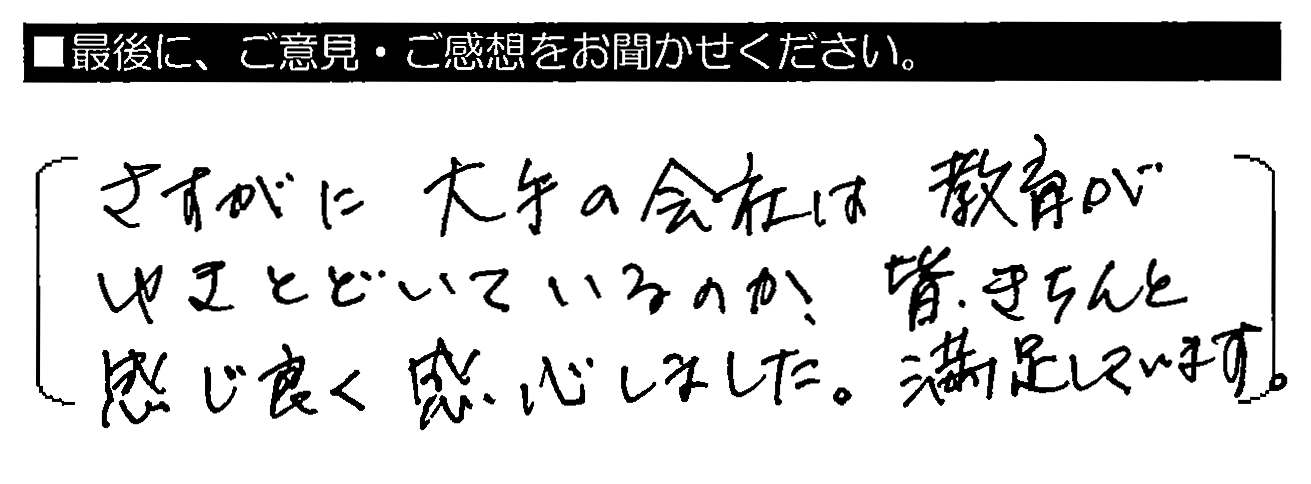 ■最後に、ご意見・ご感想をお聞かせください。
さすがに 大手の会社は 教育が
ゆきとどいているのか、皆、きちんと
感じ良く 感心しました。満足しています。